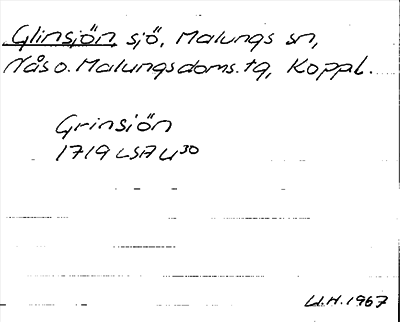 Glinsjön, sjö, Malungs sn,
Nås o. Malungs doms. tg, Koppl.
Grinsiön
1719 LSA U30
U.H. 1967